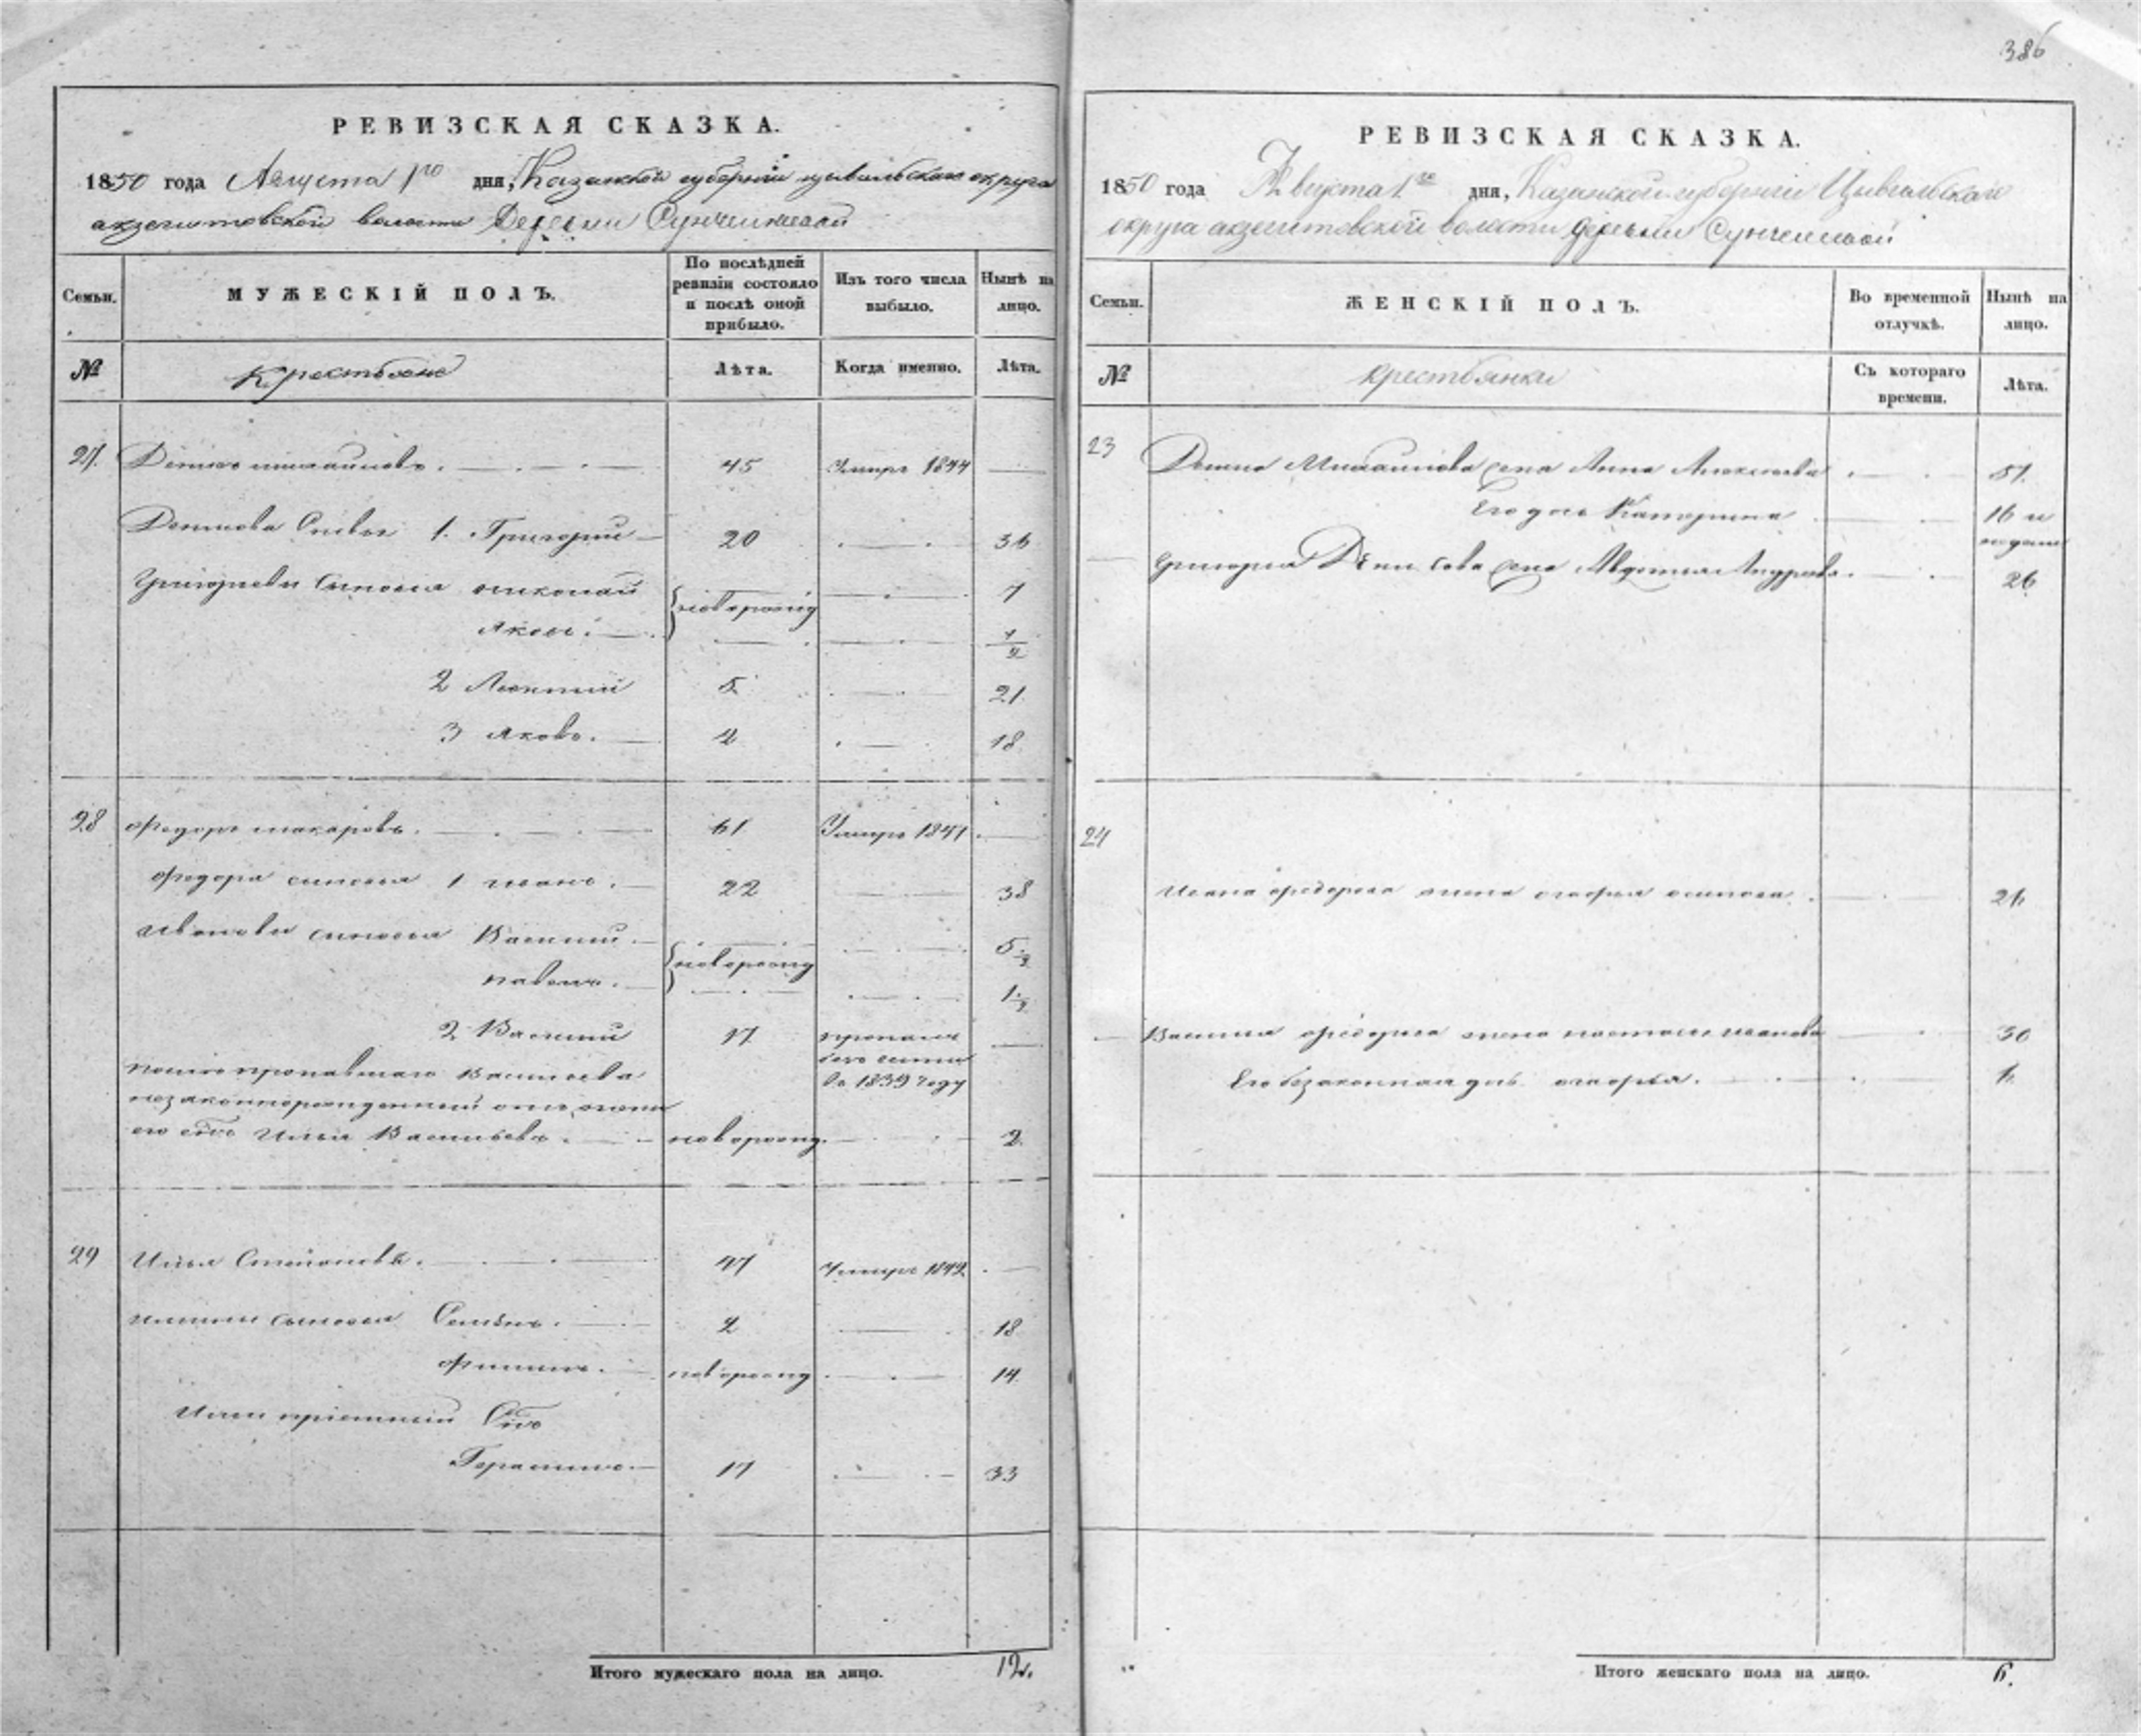 386
РЕВИЗСКАЯ СКАЗКА.
1850 года Августа 1го дня, Казанской губернiи цывильскаго округа
акзегитовской волости Деревни
Семьи. МУЖЕСКІЙ ПОЛЪ. По послѣдней ревизіи состояло и послѣ оной прибыло. Изъ того числа выбыло. Нынѣ на лицо.
№ Крестьяне Лѣта. Когда именно. Лѣта.
27. Денисъ михайловъ. 45 Умиръ 1844
Денисова 1. Григорий 20 36
Григорьевы Сыновья николай новорожд 7
Яковъ. 1/2
2 5 21
3 яковъ. 2 18
28 Федоръ макаровъ. 61 Умиръ 1847
Федора сыновья 1 иванъ. 22 38
Ивановы сыновья Василий новорожд 5 1/2
павелъ. 1 1/2
2 Василий 17 пропалъ
безъ вести
въ 1839 году
после пропавшаго Васильева
незаконнорожденный отъ жены
его сынъ Илья Васильевъ. новорожд. 2
29 Илья Степановъ. 47 Умиръ 1842
ильины сыновья Семенъ. 2 18
Филипъ. новорожд 14
Ильи приемный Сынъ
Герасимъ. 17 33
Итого мужескаго пола на лицо. 12.
РЕВИЗСКАЯ СКАЗКА.
1850 года Августа 1го дня, Казанской губернiи Цывильскаго
округа акзегитовской волости деревни
Семьи. ЖЕНСКІЙ ПОЛЪ. Во временной отлучкѣ. Нынѣ на лицо.
№ крестьянки Съ котораго времени. Лѣта.
23 Дениса Михайлова жена Анна Алексеева 51.
Его дочь Катерина 16 и
Григория Денисова жена Авдотья Андреева. 26
24
Ивана Федорова жена агафья осипова. 26
Василия Федорова жена настасья иванова 30
Его беззаконная дочь агафья. 1.
Итого женскаго пола на лицо. 6.